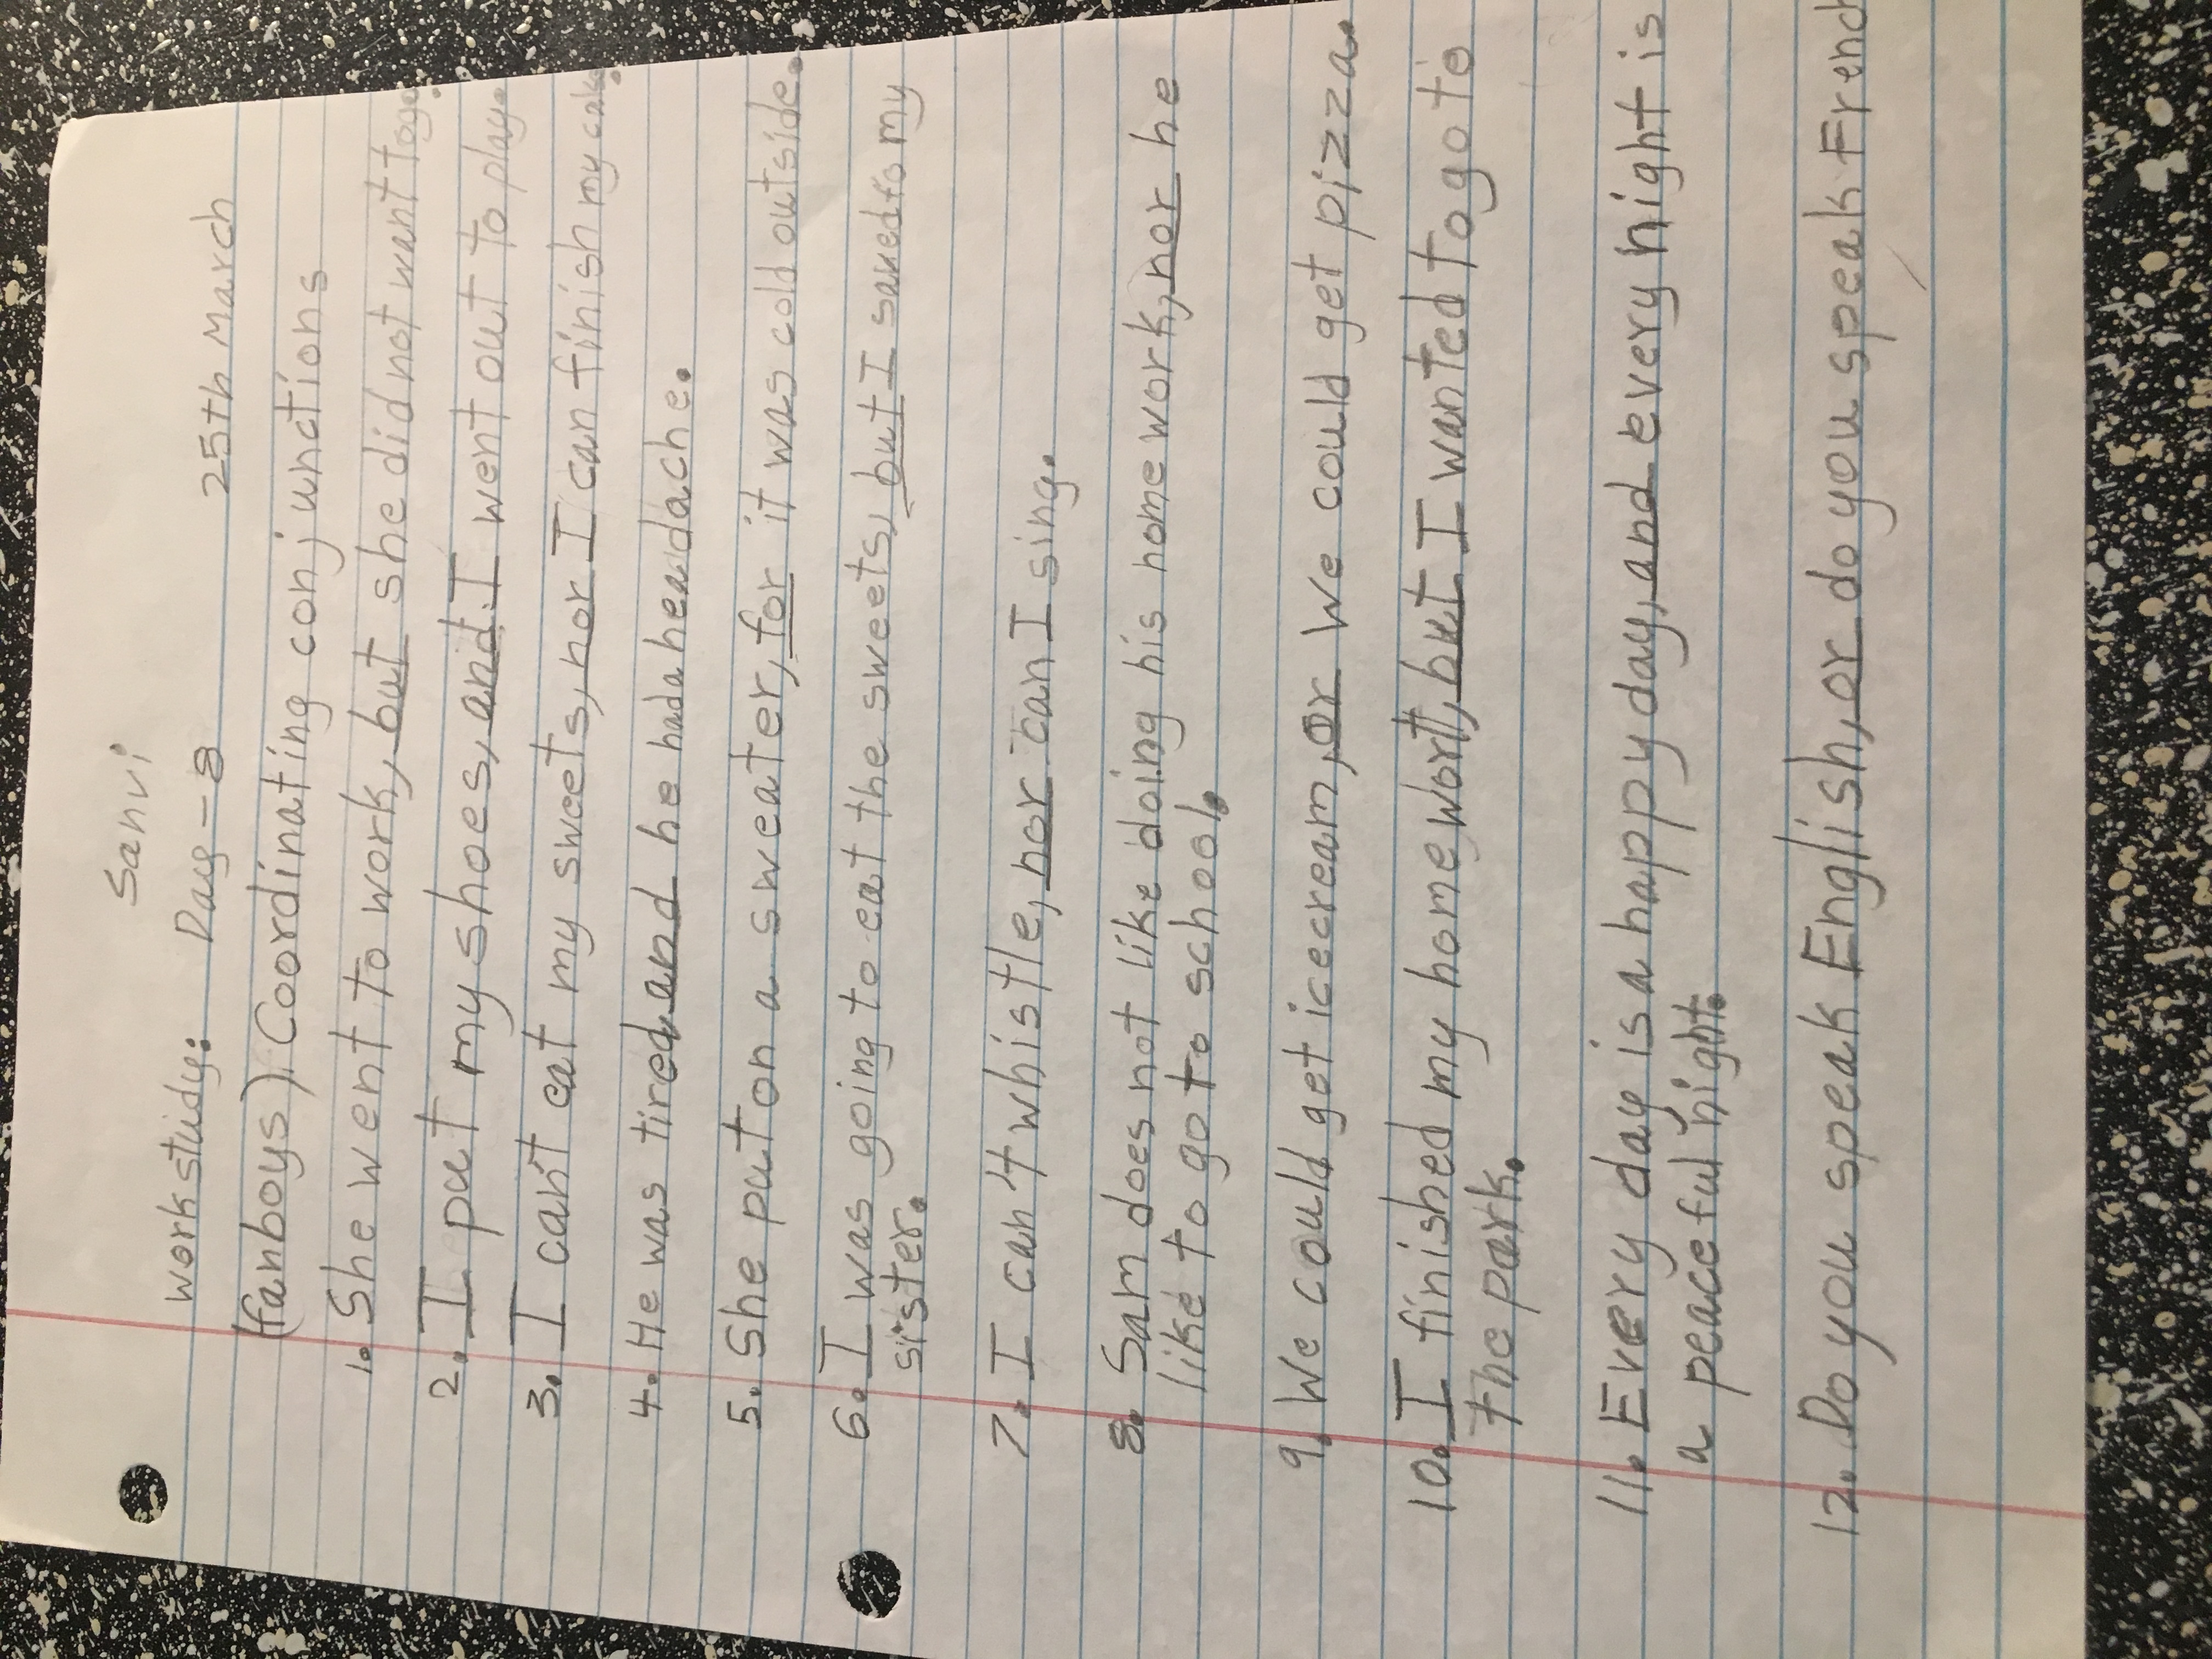 Sanvi
work study: Day - 8 25th March
(fanboys). Coordinating conjunctions
1. She went to work, but she did not want to go.
2. I put my shoes, and I went out to play.
3. I can't eat my sweets, nor I can finish my cake.
4. He was tired and he had a headache.
5. She put on a sweater, for it was cold outside.
6. I was going to eat the sweets, but I saved fo my
sister.
7. I can't whistle, nor can I sing.
8. Sam does not like doing his home work, nor he
like to go to school.
9. We could get icecream, or We could get pizza.
10. I finished my home work, but I wanted to go to
the park.
11. Every day is a happy day, and every night is
a peaceful night.
12. Do you speak English, or do you speak French